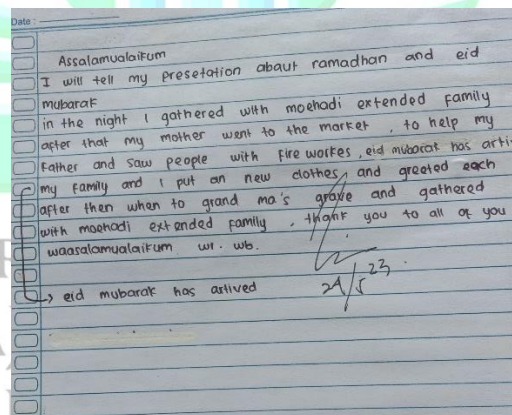 Date :
Assalamualaikum
I will tell my presetation abaut ramadhan and eid
mubarak
in the night I gathered with moehadi extended family
after that my mother went to the market , to help my
Father and saw people with fire workes , eid mubarat has arti
my family and I put an new clothes, and greeted each
after then when to grand ma's grave and gathered
with moehadi extended family . thank you to all of you
waasalamualaikum wr . wb.
eid mubarak has artived
24/5 23